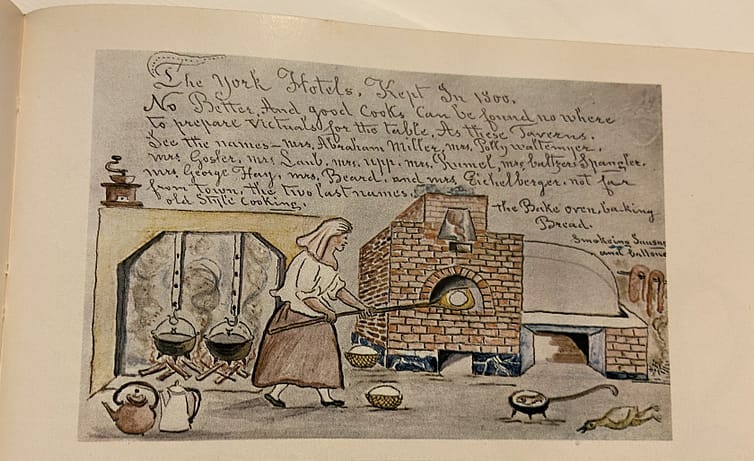 The York Hotels, Kept In 1800.
No Better, And good Cooks Can be found no where
to prepare victuals for the table, As these Taverns.
See the names – mrs, Abraham Miller, mrs, Polly waltemyer,
mrs Gosler, mrs Laub, mrs, upp, mrs, Rumel, mrs baltzer Spangler,
mrs, George Hay, mrs, Beard, and mrs, Eichelberger, not far
from town, the two last names.
old Style Cooking.
the Bake oven, baking
Bread.
Smokeing Sausag
and